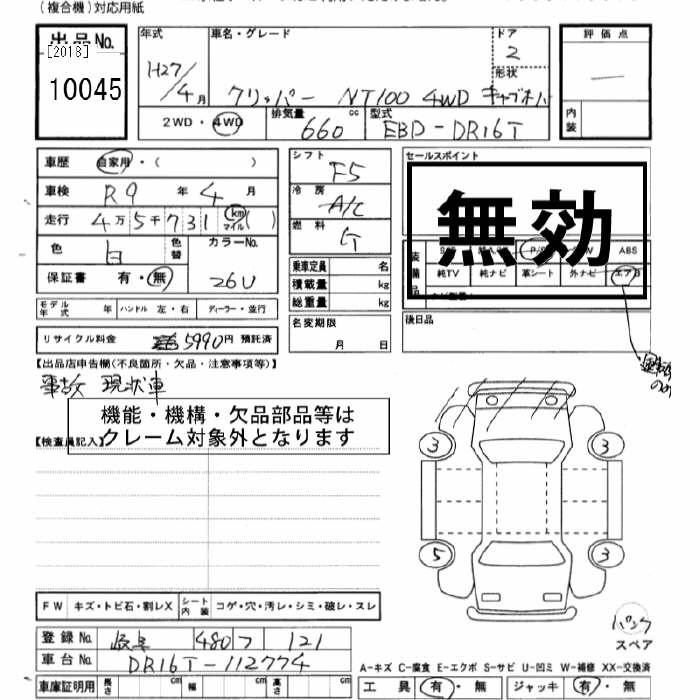 (複合機)対応用紙
出品No.
[2018]
10045
年式
H27/4月
車名・グレード
クリッパー NT100 4WD キャブオーバ
ドア
2
形状
評価点
内装
2WD・4WD
排気量 660 cc
型式 EBD-DR16T
車歴 自家用・( )
車検 R9年4月
走行 4万5千731 km マイル ( )
色 白 色替
カラーNo. 26U
保証書 有・無
モデル年式 年 ハンドル 左・右 ディーラー・並行
リサイクル料金 5990円 預託済
シフト F5
冷房 A/C
燃料 G
乗車定員 名
積載量 kg
総重量 kg
名変期限
月 日
セールスポイント
無効
ABS
純TV 純ナビ 革シート 外ナビ エアB
後日品
【出品店申告欄(不良箇所・欠品・注意事項等)】
事故 現状車
機能・機構・欠品部品等は
クレーム対象外となります
【検査員記入】
3 3
5 3
FW キズ・トビ石・割レX
シート内装 コゲ・穴・汚レ・シミ・破レ・スレ
登録No. 岐阜 480 フ 121
車台No. DR16T-112774
車庫証明用 長さ cm 幅 cm 高さ cm
パンク
スペア
A-キズ C-腐食 E-エクボ S-サビ U-凹ミ W-補修 XX-交換済
工具 有・無 ジャッキ 有・無